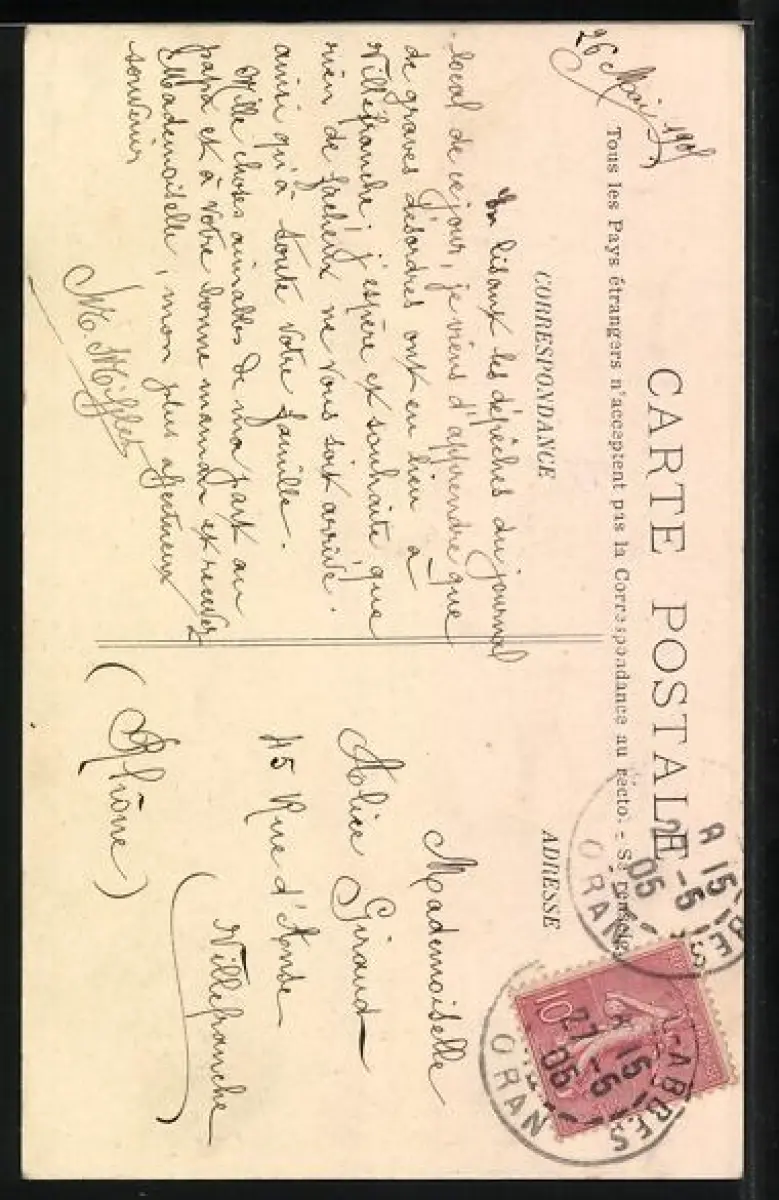 CARTE POSTALE
Tous les Pays étrangers n'acceptent pas la Correspondance au recto. - Se renseig
26 Mai 1905
CORRESPONDANCE
En lisant les dépêches du journal
local de ce jour, je viens d'apprendre que
de graves désordres ont eu lieu à
Villefranche; j'espère et souhaite que
rien de fâcheux ne vous soit arrivé.
ainsi qu'à toute votre famille.
Mille choses aimables de ma part au
papa et à votre bonne maman et recevez
Mademoiselle, mon plus affectueux
souvenir
ADRESSE
Mademoiselle
Alice Giraud
45 Rue d'Anse
(Villefranche
(Rhône)
10
15
27-5
05
ORAN
ABBÈS
15
-5
05
ORAN